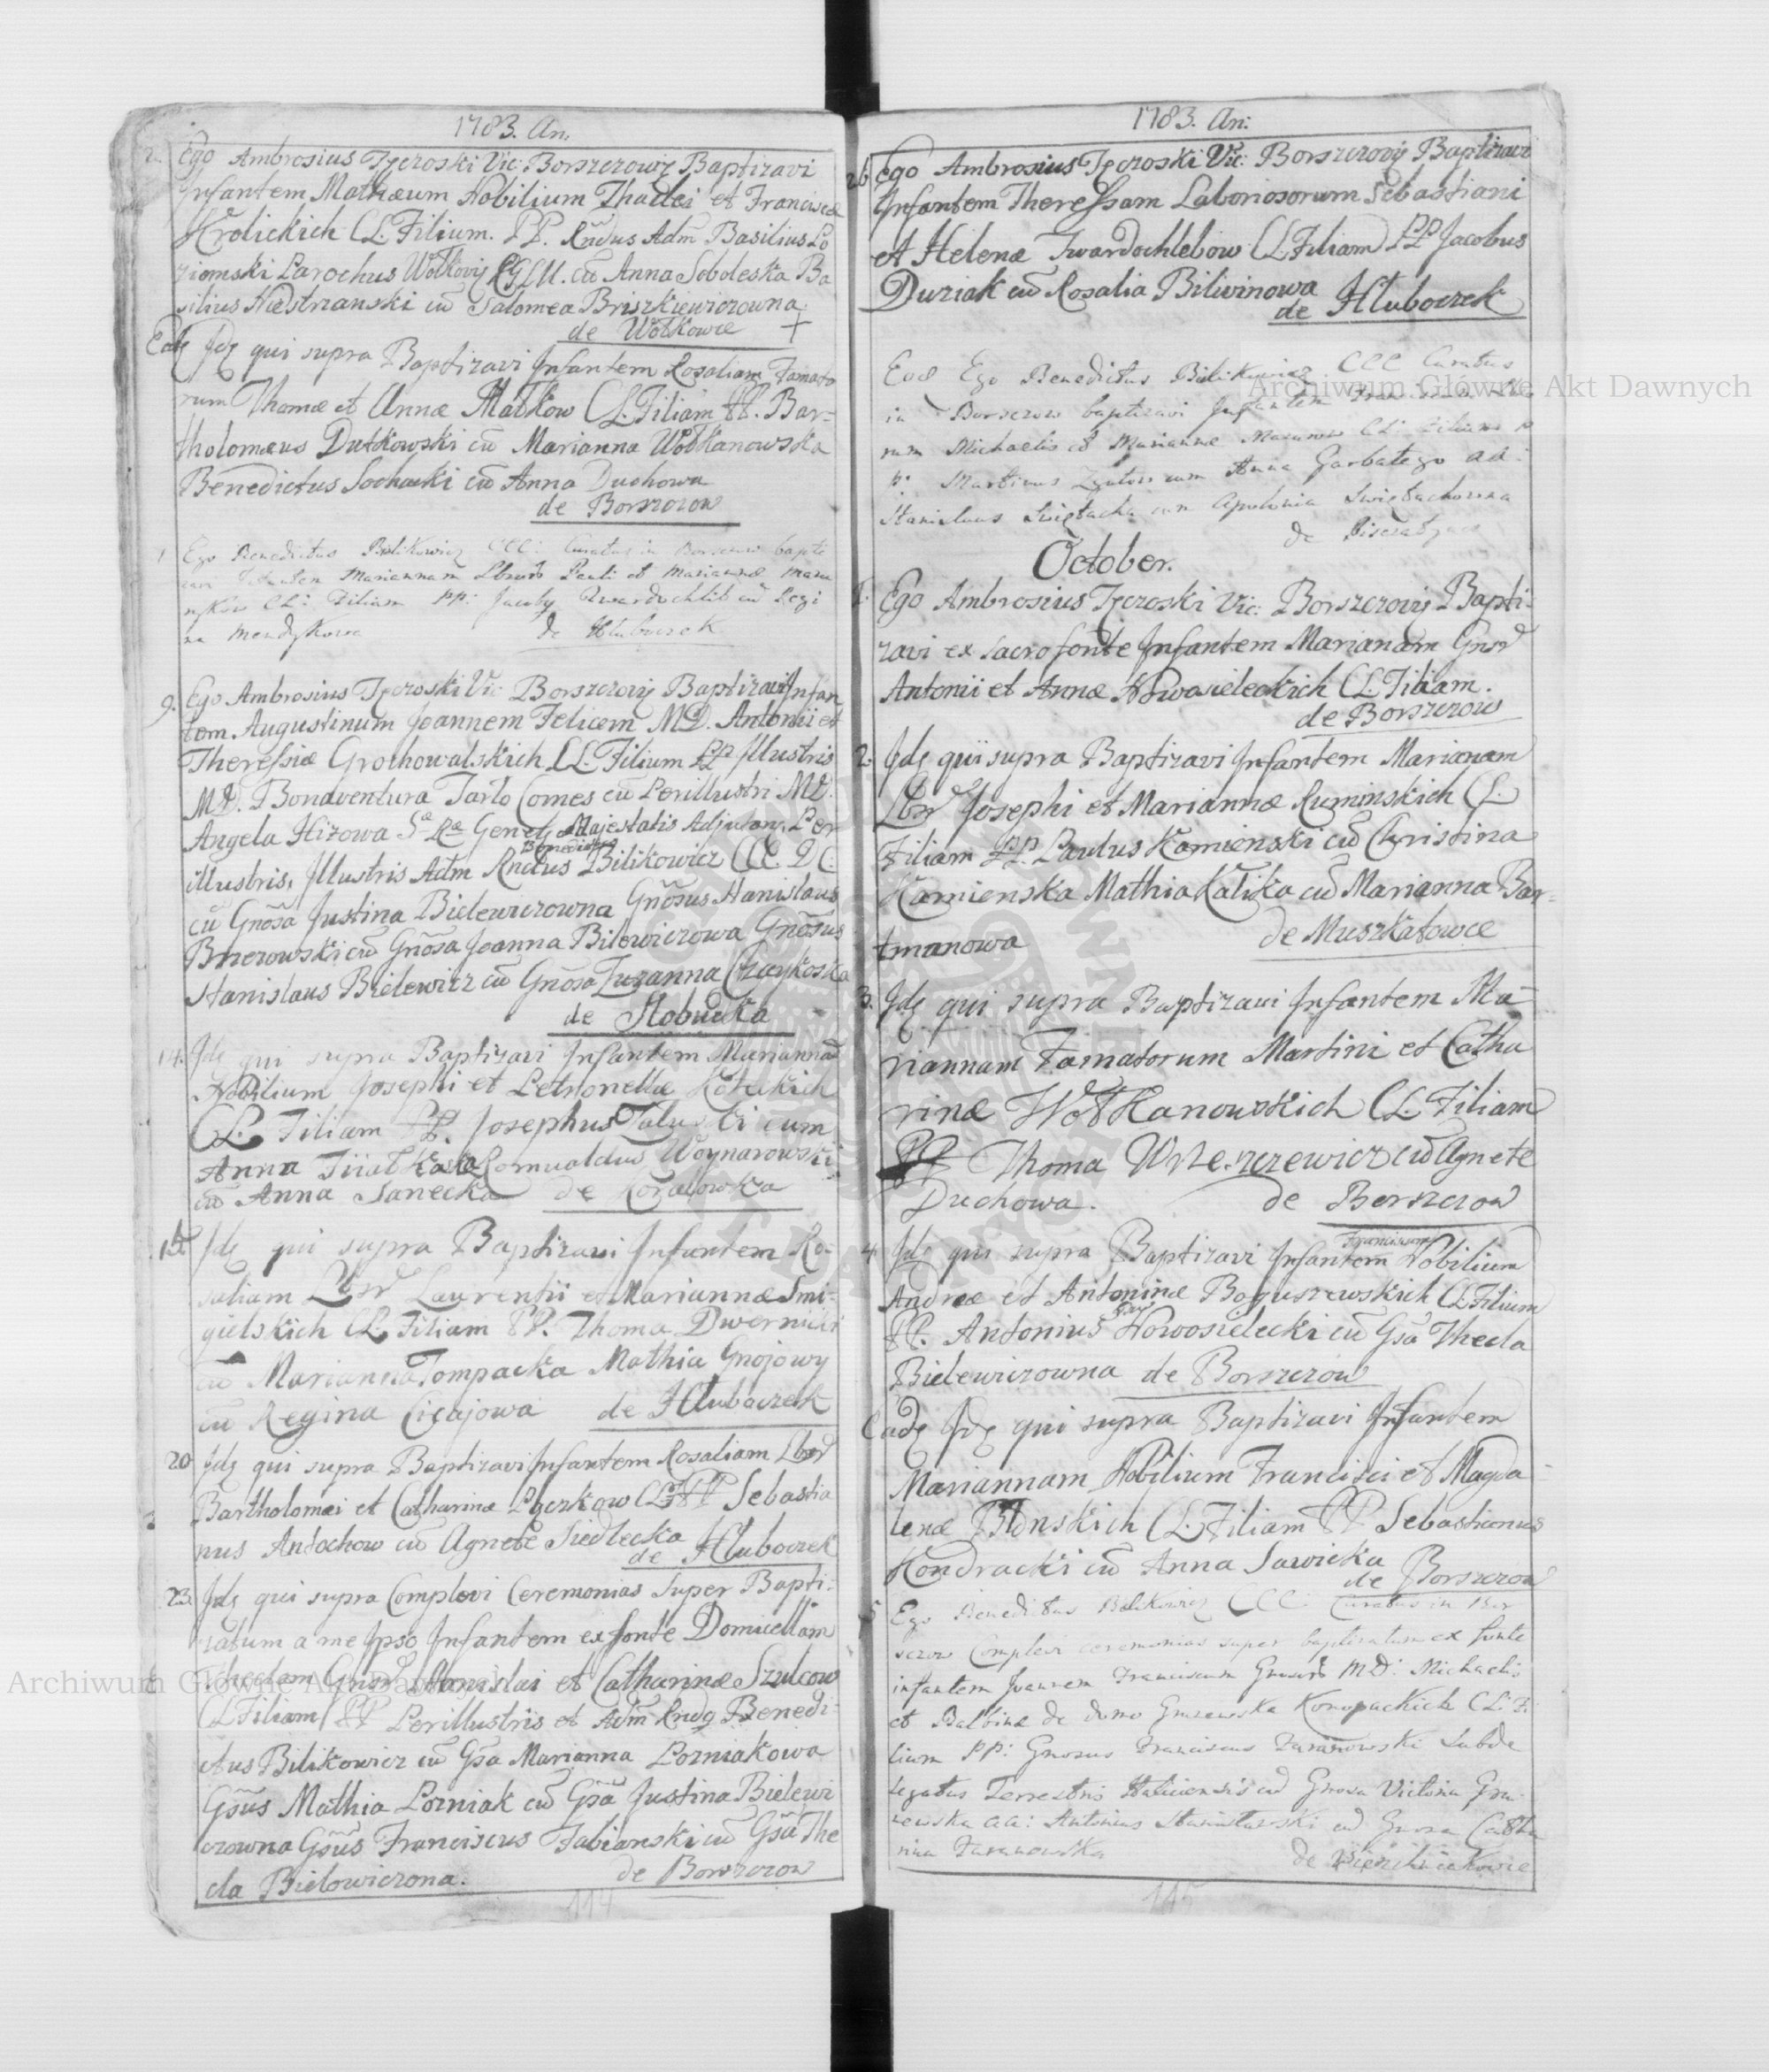 1783. An.
2. Ego Ambrosius Tyczoski Vic: Borszczoviẽ Baptizavi
Infantem Mathæum Nobilium Thadei et Franciscæ
Krolickich CL. Filium. PP. Rñdus Adm̃ Basilius Ło
ziomski Parochus Wołkoviẽ cũ Anna Soboleska Ba
silius Niestrzanski cũ Salomea Briszkiewiczowna
de Wołkowce +
Eadẽ Jdẽ qui supra Baptizavi Infantem Rosaliam Famato
rum Thomæ et Annæ Małkow CL. Filiam PP. Bar-
tholomæus Dutkowski cũ Marianna Wołkanowska
Benedictus Sochacki cũ Anna Duchowa
de Borszczow
Ego Benedictus Bilikowicz CCC: Curatus in Borszczow bapti
Infantem Mariannam Pauli et Mariannæ
CL: Filiam PP: Jacobg Twardochlib cũ Regi
na Mendykowa de Hluboczek
9. Ego Ambrosius Tyczoski Vic Borszczoviẽ Baptizavi Infan
tem Augustinum Joannem Felicem MD. Antonii et
Theressiæ Grothowalskich LL. Filium PP Illustris
MD. Bonaventura Tarło Comes cũ Perillustri MD.
Angela Hizowa Sæ Ræ Genẽ Majestatis Adjutanẽ Per
illustris, Illustris Adm Rndus Benedictus Bilikowicz CCC. DC.
cũ Gnõsa Justina Bielewiczowna Gnõsus Stanislaus
Brzezowski cũ Gnõsa Joanna Bilewiczowa Gnõsus
Stanislaus Bielewicz cũ Gnõsa Zuzanna Czaykoska
de Słobudka
14. Jdẽ qui supra Baptizavi Infantem Mariannã
Nobilium Josephi et Petronellæ Koteckich
CL. Filiam PP. Josephus cum
Anna Romualdus Woynarowski
cũ Anna Sanecka de Korolowka
Jdẽ qui supra Baptizavi Infantem Ro-
saliam Lbr̃ Laurentii et Mariannæ Smi-
gielskich CL Filiam PP. Thoma Dwernicki
cũ Marianna Tompacka Mathia Gnojowy
cũ Regina Cięajowa de Hluboczek
20 Jdẽ qui supra Baptizavi Infantem Rosaliam Lbr̃
Bartholomæi et Catharinæ Pączkow CLF PP Sebastia
nus Antochow cũ Agnete Siedlecka
de Hluboczek
23. Jdẽ qui supra Complevi Ceremonias Super Bapti-
zatum a me Jpso Infantem ex fonte Domicellam
Theclam Gnõsr̃ Stanislai et Catharinæ Szulcow
CL Filiam PP Perillustris et Adm̃ Rndg Benedi-
ctus Bilikowicz cũ Gsa Marianna Pozniakowa
Gsus Mathia Pozniak cũ Gsa Justina Bielewi
czowna Gsus Franciscus Fabianski cũ Gsa The
cla Bielowiczona. de Borszczow
114
1783. An:
26 Ego Ambrosius Tyczoski Vic: Borszczoviẽ Baptizavi
Infantem Theressam Laboriosorum Sebastiani
et Helenæ Twardochlebow CL Filiam PP Jacobus
Duziak cũ Rosalia Biliwinowa
de Hluboczek
Eod Ego Benedictus Bilikowicz CCC Curatus
in Borszczow baptizavi Infantem
rum Michaelis et Mariannæ Mazurow CL: Filium P
p: Martinus cum Anna Garbatego aa:
Stanislaus Swiętucha cum Apolonia Swiętuchowna
de
October.
1. Ego Ambrosius Tyczoski Vic: Borszczoviẽ Bapti-
zavi ex sacro fonte Infantem Mariannam Gnsr̃
Antonii et Annæ Nowosieleckich CL. Filiam.
de Borszczow
2. Jdẽ qui supra Baptizavi Infantem Marianam
Lbr̃ Josephi et Mariannæ Ruminskich CL.
Filiam PP. Paulus Kamienski cũ Christina
Kamienska Mathia Kalika cũ Marianna Bar-
tmanowa de Muszkatowce
3. Jdẽ qui supra Baptizavi Infantem Ma-
riannam Famatorum Martini et Catha
rinæ Wołkanowskich CL. Filiam
PP Thoma Wrzeszczewicz cũ Agnete
Duchowa. de Borszczow
4. Jdẽ qui supra Baptizavi Infantem Franciscum Nobilium
Andreæ et Antoninæ Boguszewskich CL Filium
PP. Antonius Nowosielecki cũ Gsa Thecla
Bielewiczowna de Borszczow
Eadẽ Jdẽ qui supra Baptizavi Infantem
Mariannam Nobilium Francisci et Magda
lenæ Błonskich CL. Filiam PP. Sebastianus
Kondracki cũ Anna Sawicka
de Borszczow
5 Ego Benedictus Bilikowicz CCC Curatus in Bor
szczow Complevi ceremonias super baptizatum ex fonte
infantem Joannem Franciscum MD: Michaelis
et Balbinæ de domo Gruzewska Konopackich CL: Fi
lium PP: Gnosus Franciscus Taranowski Subde
legatus Terrestris Haliciensis cũ Gnosa Victoria Gru-
zewska aa: Antonius cũ Gnosa Catha
rina Taranowska de
115
Archiwum Główne Akt Dawnych
Archiwum Główne Akt Dawnych